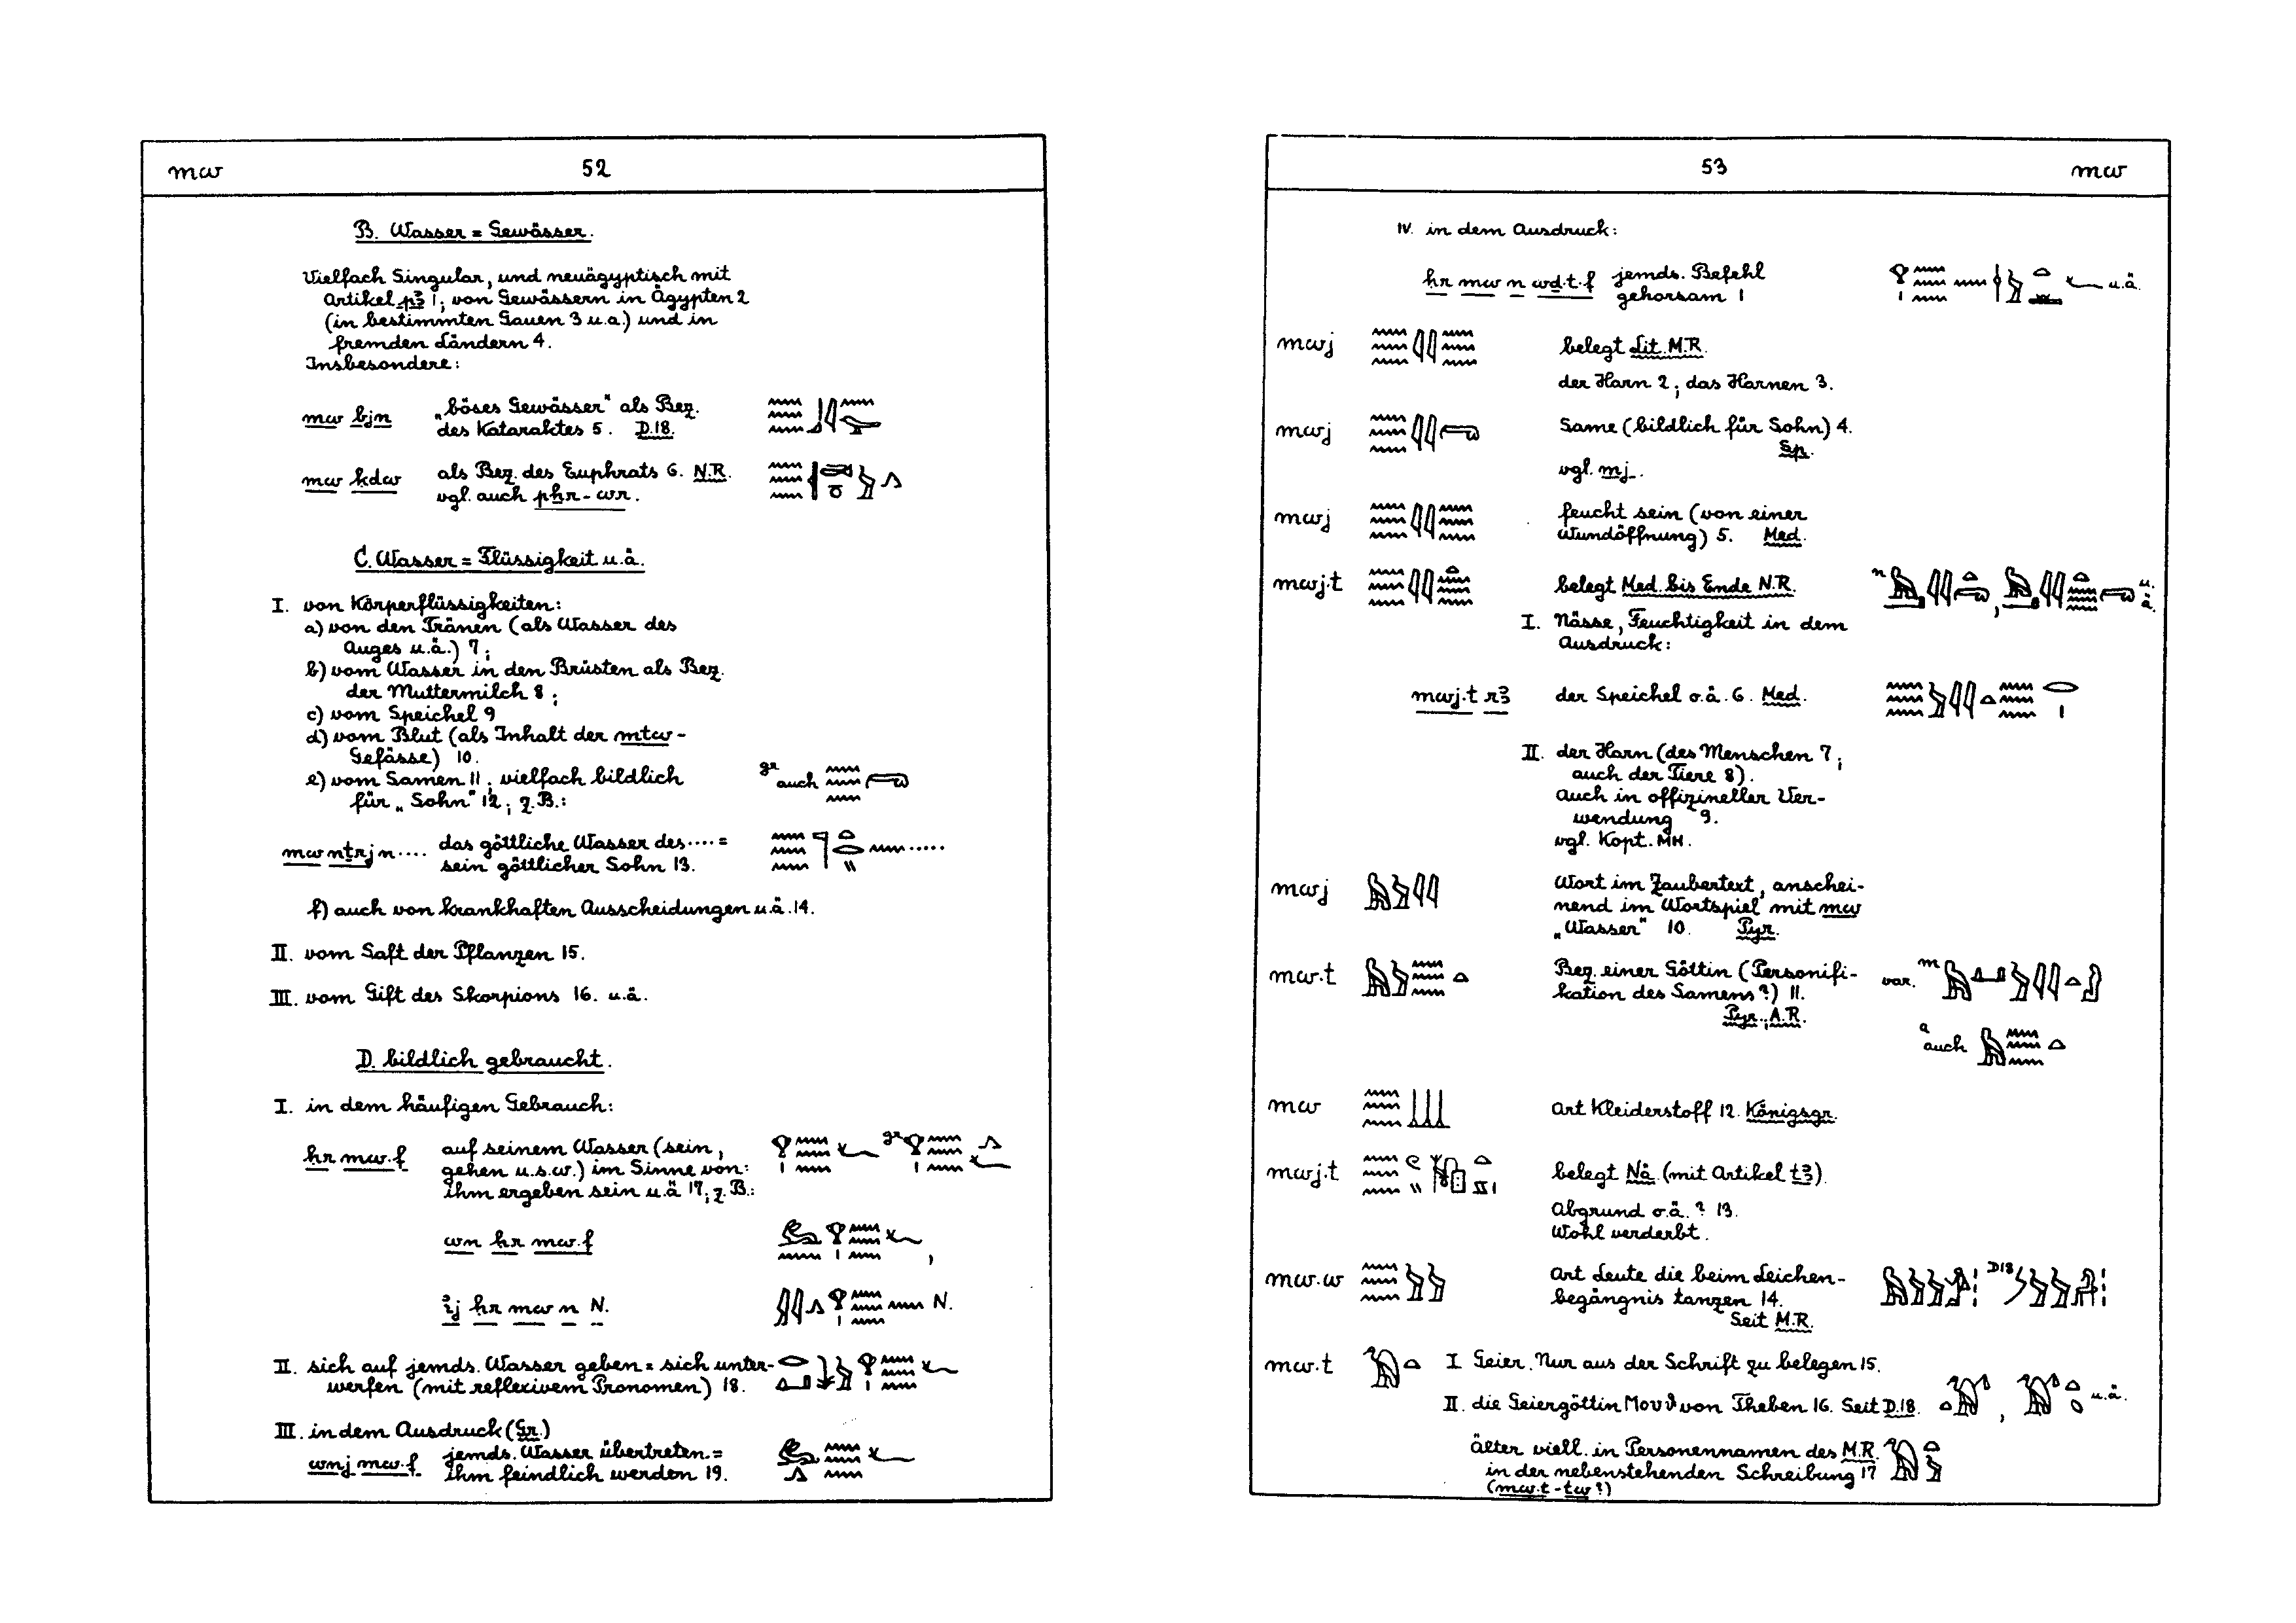 mw 52
B. Wasser = Gewässer.
Vielfach Singular, und neuägyptisch mit
Artikel pꜣ 1; von Gewässern in Ägypten 2
(in bestimmten Gauen 3 u.a.) und in
fremden Ländern 4.
Insbesondere:
mw bjn „böses Gewässer" als Bez.
des Kataraktes 5. D.18.
mw ḳdw als Bez. des Euphrats 6. N.R.
vgl. auch pẖr-wr.
C. Wasser = Flüssigkeit u.ä.
I. von Körperflüssigkeiten:
a) von den Tränen (als Wasser des
Auges u.ä.) 7;
b) vom Wasser in den Brüsten als Bez.
der Muttermilch 8;
c) vom Speichel 9
d) vom Blut (als Inhalt der mtw-
Gefässe) 10.
e) vom Samen 11; vielfach bildlich gr auch 𓈗𓂺
für „Sohn" 12; z.B.:
mw nṯrj n.... das göttliche Wasser des.... =
sein göttlicher Sohn 13.
f) auch von krankhaften Ausscheidungen u.ä. 14.
II. vom Saft der Pflanzen 15.
III. vom Gift des Skorpions 16. u.ä.
D. bildlich gebraucht.
I. in dem häufigen Gebrauch:
ḥr mw.f auf seinem Wasser (sein, gr
gehen u.s.w.) im Sinne von:
ihm ergeben sein u.ä 17; z.B.:
wn ḥr mw.f ,
ꞽj ḥr mw n N. N.
II. sich auf jemds. Wasser geben = sich unter-
werfen (mit reflexivem Pronomen) 18.
III. in dem Ausdruck (Gr.)
wnj mw.f jemds. Wasser übertreten =
ihm feindlich werden 19.
53 mw
IV. in dem Ausdruck:
ḥr mw n wḏ.t.f jemds. Befehl u.ä.
gehorsam 1
mwj belegt Lit. M.R.
der Harn 2; das Harnen 3.
mwj Same (bildlich für Sohn) 4.
Sp.
vgl. mj.
mwj feucht sein (von einer
Wundöffnung) 5. Med.
mwj.t belegt Med. bis Ende N.R. n , u.ä.
I. Nässe, Feuchtigkeit in dem
Ausdruck:
mwj.t rꜣ der Speichel o.ä. 6. Med.
II. der Harn (des Menschen 7;
auch der Tiere 8).
Auch in offizineller Ver-
wendung 9.
vgl. Kopt. ⲙⲏ.
mwj Wort im Zaubertext, anschei-
nend im Wortspiel mit mw
„Wasser" 10. Pyr.
mw.t Bez. einer Göttin (Personifi- var. m
kation des Samens?) 11.
Pyr., A.R.
a auch
mw Art Kleiderstoff 12. Königsgr.
mwj.t belegt Nä. (mit Artikel tꜣ)
Abgrund o.ä.? 13.
Wohl verderbt.
mw.w Art Leute die beim Leichen- D18
begängnis tanzen 14.
Seit M.R.
mw.t I Geier. Nur aus der Schrift zu belegen 15.
II. die Geiergöttin Μουϑ von Theben 16. Seit D.18. , u.ä.
älter viell. in Personennamen des M.R.
in der nebenstehenden Schreibung 17
(mw.t-tw?)